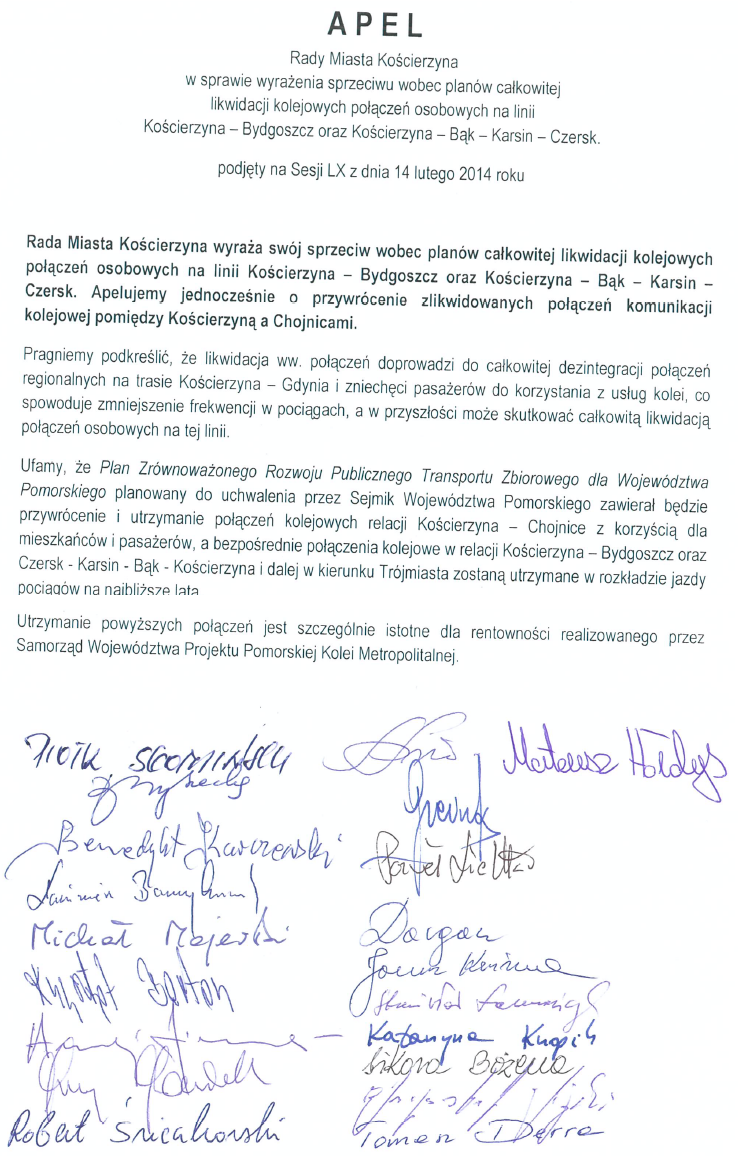 APEL
Rady Miasta Kościerzyna
w sprawie wyrażenia sprzeciwu wobec planów całkowitej
likwidacji kolejowych połączeń osobowych na linii
Kościerzyna – Bydgoszcz oraz Kościerzyna – Bąk – Karsin – Czersk.
podjęty na Sesji LX z dnia 14 lutego 2014 roku
Rada Miasta Kościerzyna wyraża swój sprzeciw wobec planów całkowitej likwidacji kolejowych
połączeń osobowych na linii Kościerzyna – Bydgoszcz oraz Kościerzyna – Bąk – Karsin –
Czersk. Apelujemy jednocześnie o przywrócenie zlikwidowanych połączeń komunikacji
kolejowej pomiędzy Kościerzyną a Chojnicami.
Pragniemy podkreślić, że likwidacja ww. połączeń doprowadzi do całkowitej dezintegracji połączeń
regionalnych na trasie Kościerzyna – Gdynia i zniechęci pasażerów do korzystania z usług kolei, co
spowoduje zmniejszenie frekwencji w pociągach, a w przyszłości może skutkować całkowitą likwidacją
połączeń osobowych na tej linii.
Ufamy, że Plan Zrównoważonego Rozwoju Publicznego Transportu Zbiorowego dla Województwa
Pomorskiego planowany do uchwalenia przez Sejmik Województwa Pomorskiego zawierał będzie
przywrócenie i utrzymanie połączeń kolejowych relacji Kościerzyna – Chojnice z korzyścią dla
mieszkańców i pasażerów, a bezpośrednie połączenia kolejowe w relacji Kościerzyna – Bydgoszcz oraz
Czersk - Karsin - Bąk - Kościerzyna i dalej w kierunku Trójmiasta zostaną utrzymane w rozkładzie jazdy
pociągów na najbliższe lata
Utrzymanie powyższych połączeń jest szczególnie istotne dla rentowności realizowanego przez
Samorząd Województwa Projektu Pomorskiej Kolei Metropolitalnej.
Piotr Słomiński
Mateusz Hołdys
Benedykt Karczewski
Paweł
Michał Majewski
Dargan
Krzysztof
Katarzyna Knopik
Sikora Bożena
Robert
Tomasz Derra